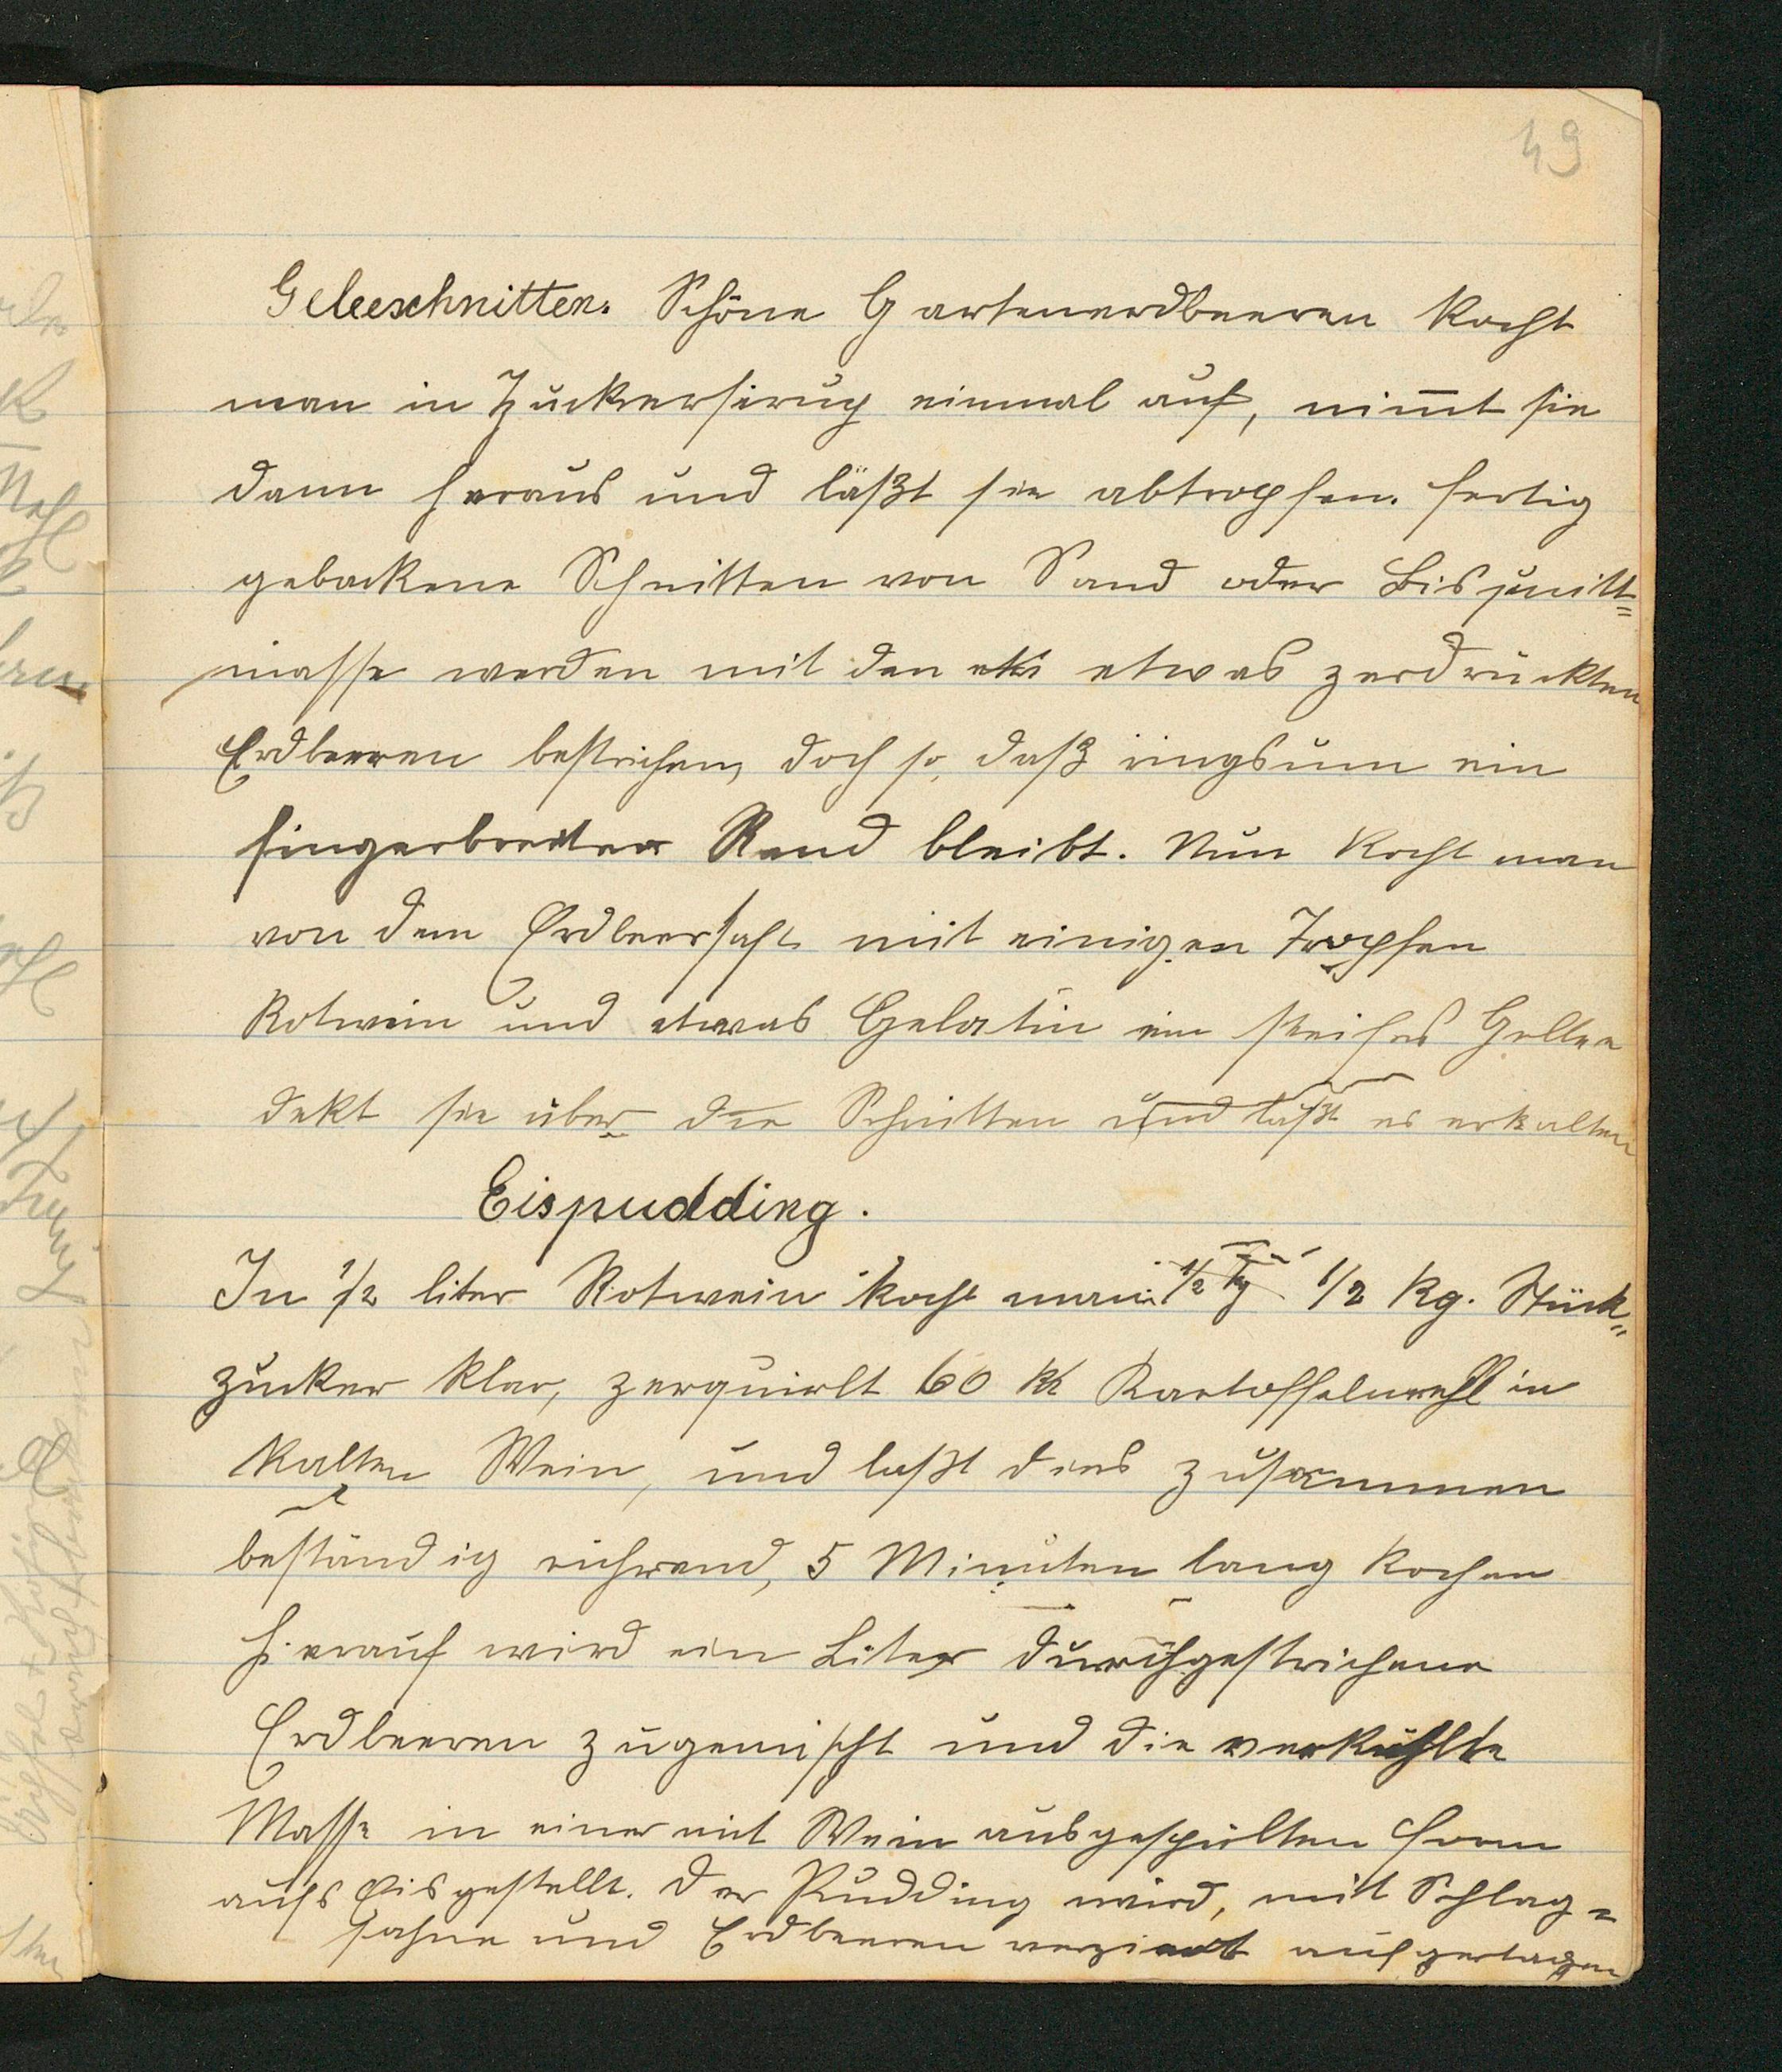 49
Geleeschnitten. Schöne Gartenerdbeeren kocht
man in Zuckersirup einmal auf, nim̅t sie
dann heraus und läßt sie abtropfen. Fertig
gebackene Schnitten von Sand oder Bisquitt=
masse werden mit den etw etwas zerdrückten
Erdbeeren bestrichen, doch so, daß ringsum ein
fingerbreiter Rand bleibt. Nun kocht man
von dem Erdbeersaft mit einigen Tropfen
Rotwein und etwas Gelatin ein steifes Gellee
dekt sie über die Schnitten und läßt es erkalten
Eispudding.
In 1/2 liter Rotwein kocht man 1/2 kg 1/2 kg. Stück=
zucker klar, zerquirlt 60 Kartoffelmehl in
kalten Wein, und laßt dies zusammen
beständig rührend, 5 Minuten lang kochen
hierauf wird ein Liter durchgestrichene
Erdbeeren zugemischt und die verkühlte
Masse in einer mit Wein ausgespülten Form
aufs Eis gestellt. Der Pudding wird, mit Schlag=
sahne und Erdbeeren verziert aufgertagen